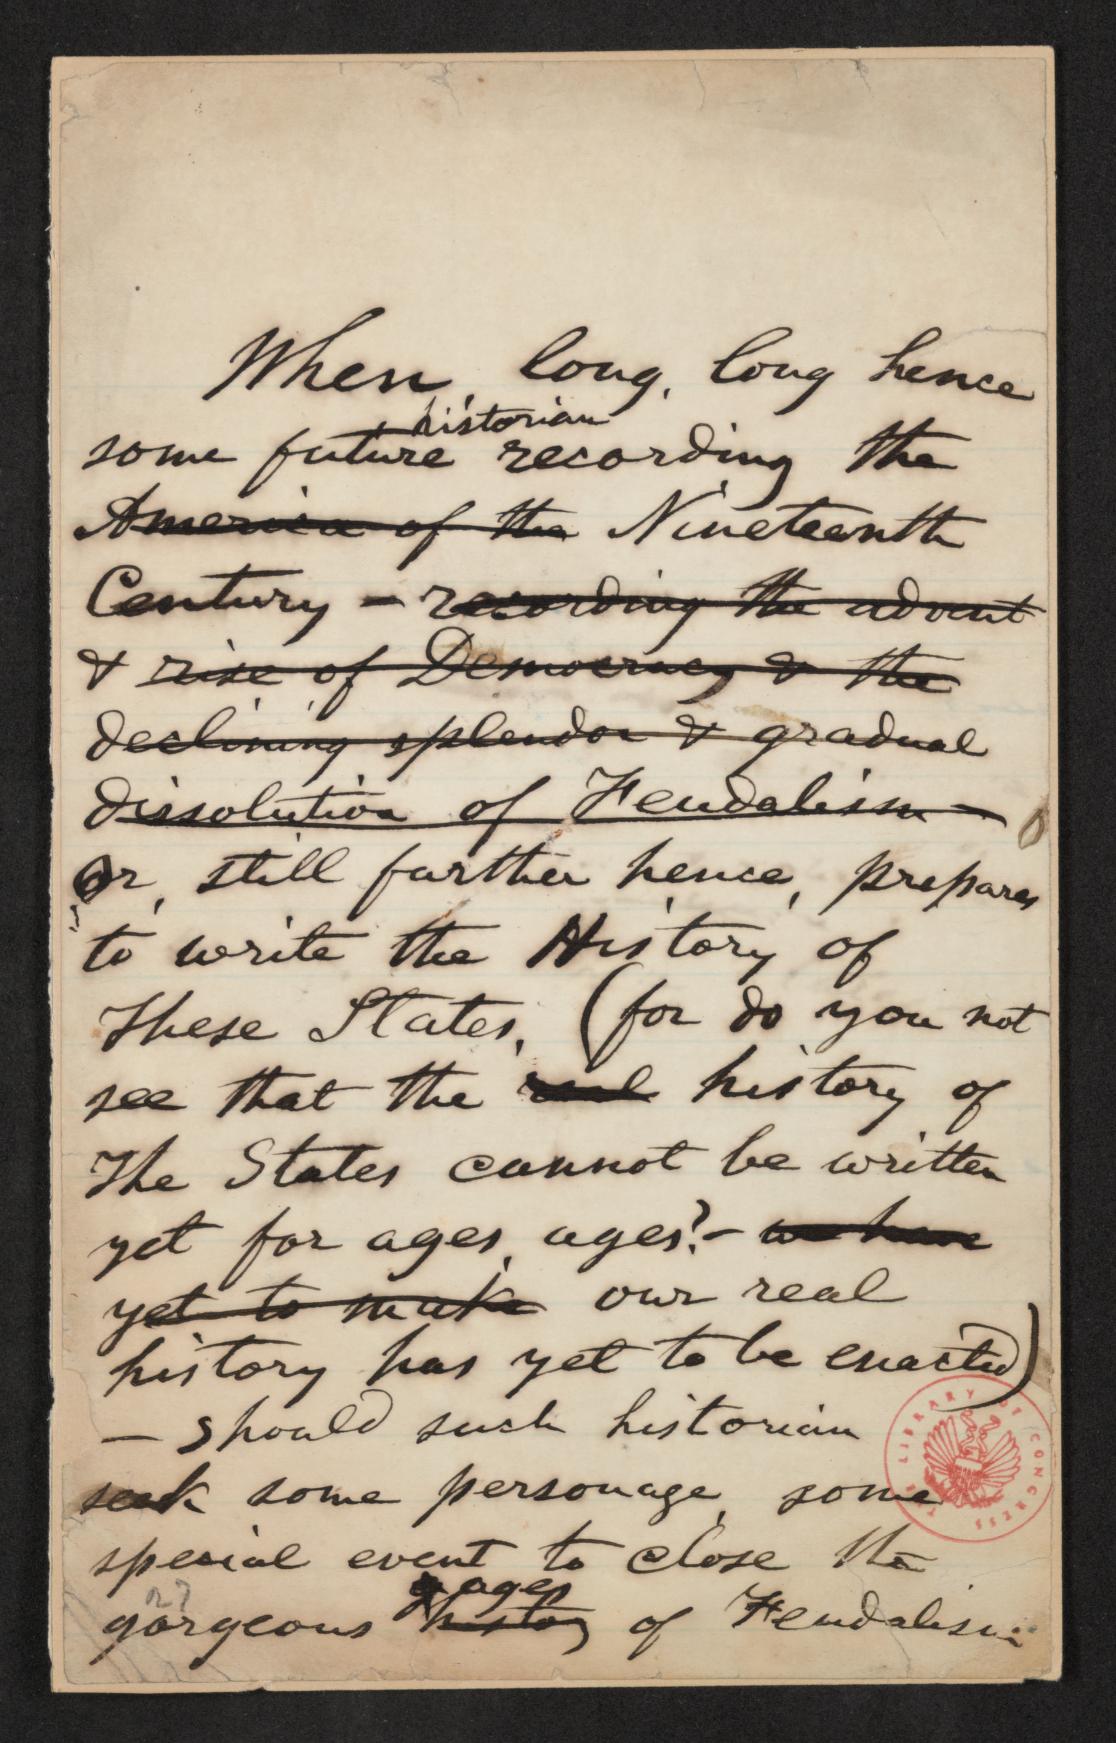 When long, long hence
historian
some future recording the
America of the Nineteenth
Century – recording the advent
& rise of Democracy & the
declining splendor & gradual
dissolution of Feudalism –
Or, still farther hence, prepares
to write the History of
These States, (for do you not
see that the real history of
The States cannot be written
yet for ages, ages? – we have
yet to make our real
history has yet to be enacted)
– should such historian
seek some personage, some
special event to close the
ages
gorgeous history of Feudalism
27
THE LIBRARY OF CONGRESS